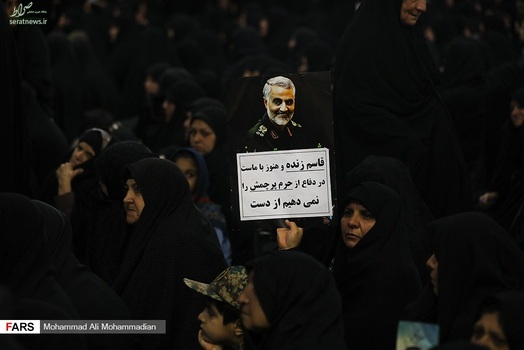 صراط
seratnews.ir
قاسم زنده و هنوز با ماست
در دفاع از حرم پرچمش را
نمی دهیم از دست
FARS
Mohammad Ali Mohammadian